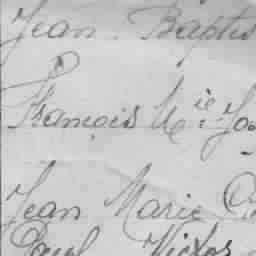 Jean Baptis
François M ie Jo
Jean Marie
Paul Victor